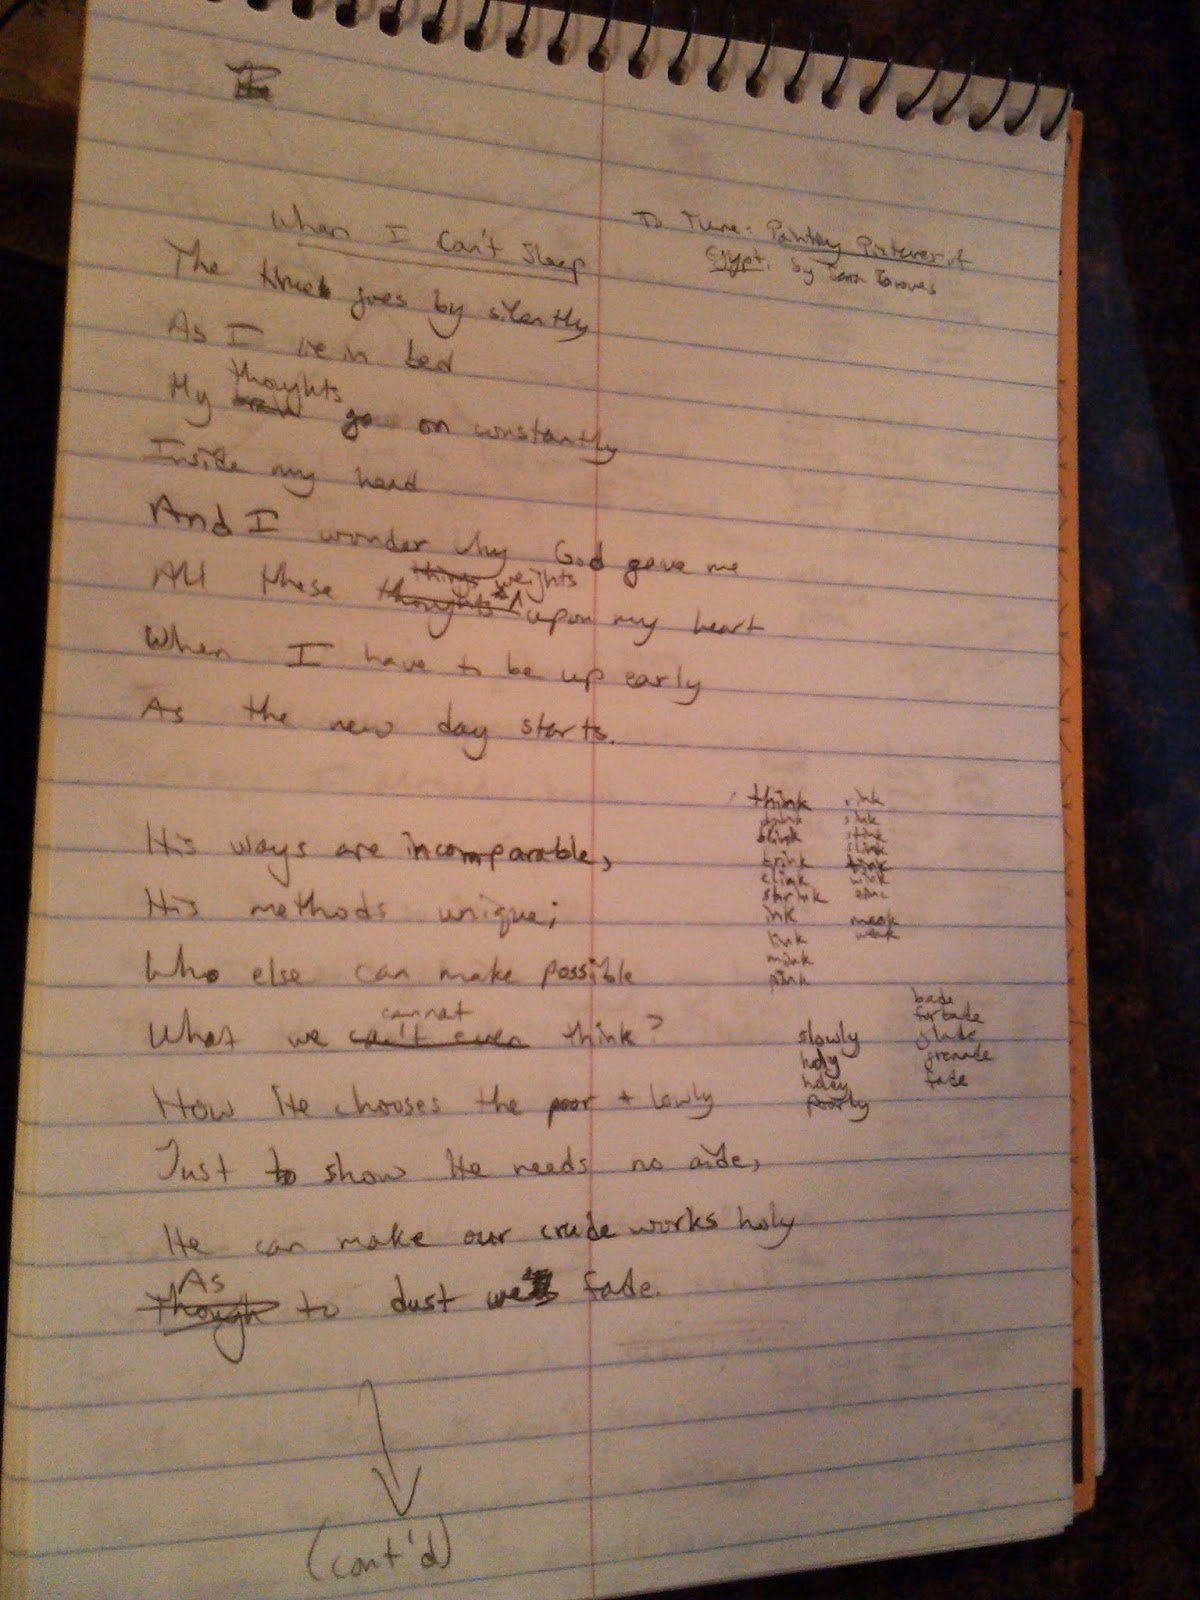 When I Can't Sleep
To Tune: Painting Pictures of
Egypt, by Sara Groves
The time goes by silently
As I lie in bed
thoughts
My brain go on constantly
Inside my head
And I wonder why God gave me
things weights
All these thoughts upon my heart
When I have to be up early
As the new day starts.
think
blink
brink
clink
shrink
ink
link
mink
pink
sink
stink
slink
wink
zinc
meek
weak
His ways are incomparable,
His methods unique;
Who else can make possible
cannot
What we can't even think?
slowly
holy
holey
poorly
bade
forbade
glade
grenade
fade
How He chooses the poor + lowly
Just to show He needs no aide,
He can make our crude works holy
As
Though to dust we fade.
(cont'd)